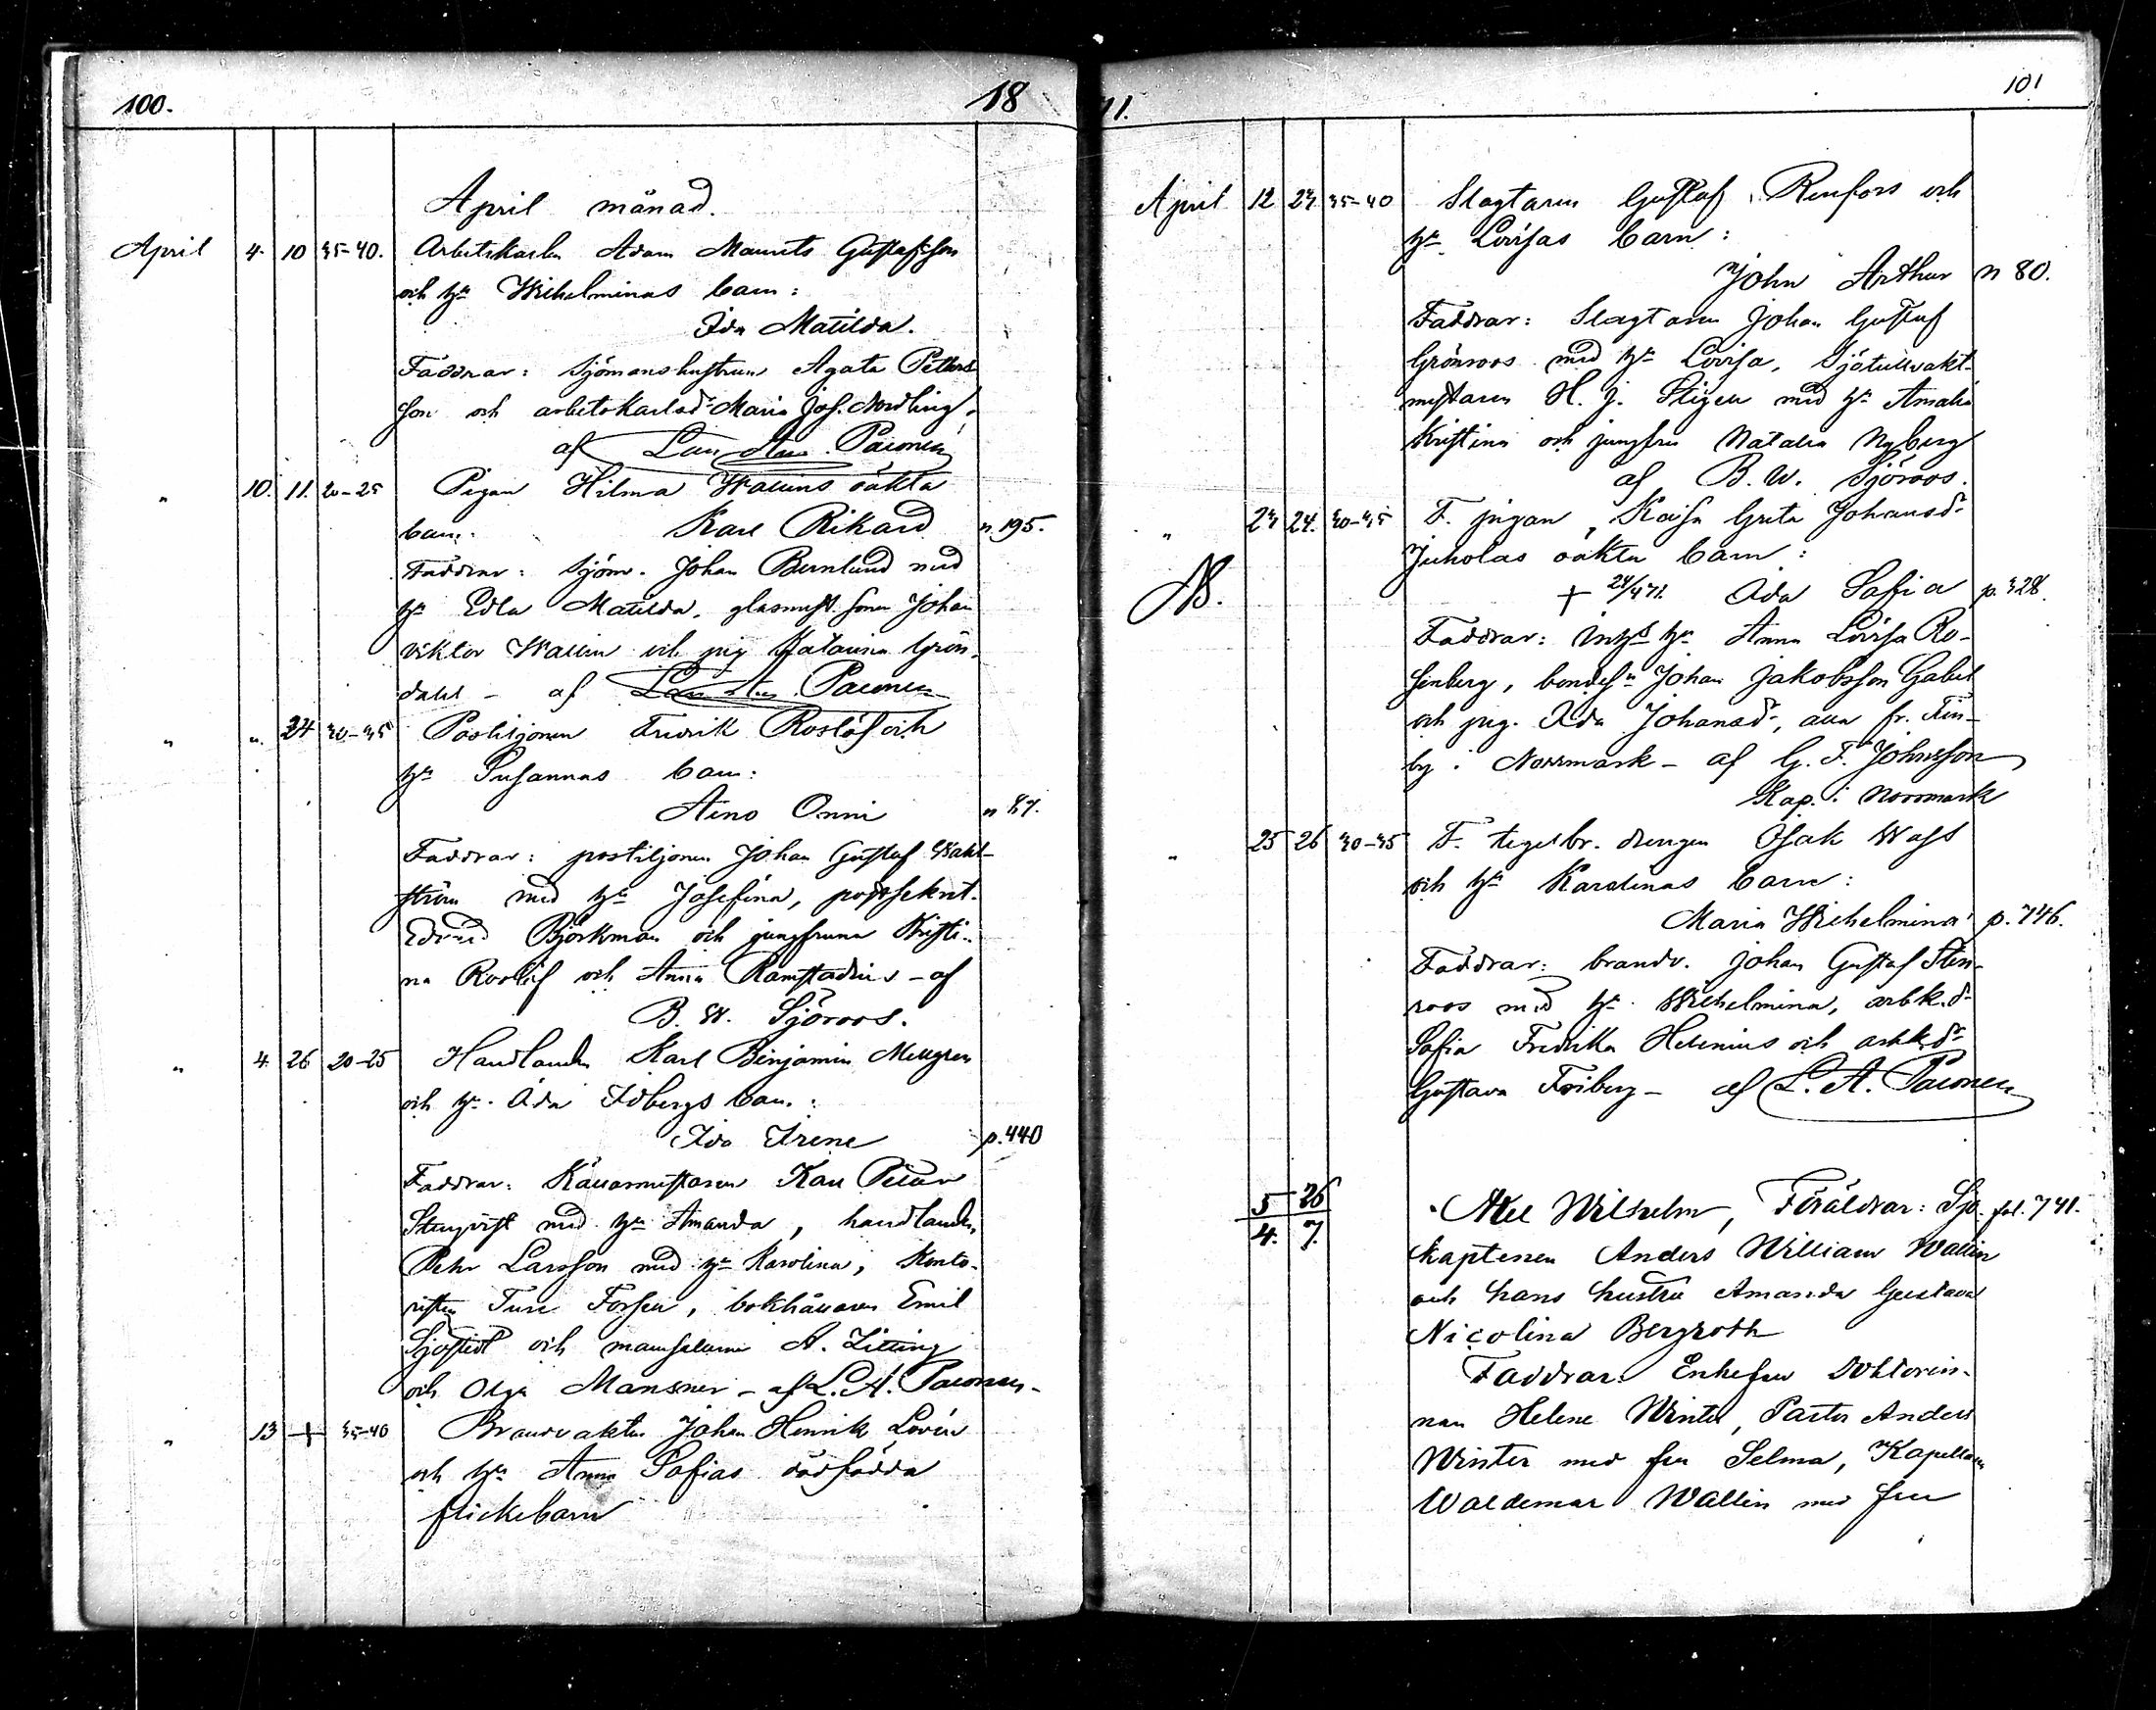 100. 18
April månad.
April 4. 10 35-40. Arbetskarlen Adam Maurits Gustafsson
och hu Wilhelminas barn:
Ida Matilda.
Faddrar: sjömanshustrun Agata Petters-
son och arbetskarlsd Maria Jos. Nordling,
af Lars Paronen
" 10. 11. 20-25 Pigan Hilma Wallins oäkta
barn: Karl Rikard n. 195.
Faddrar: sjöm. Johan Bernlund med
hu Edla Matilda, glasmäst. sonen Johan
Viktor Wallin och pig Katarina Grön-
dahl - af Paronen
" " 24 30-35 Postiljonen Fredrik Roslöf och
hu Susannas barn:
Aino Onni n 87.
Faddrar: postiljonen Johan Gustaf Wahl-
ström med hu Josefina, postsekret.
Edvard Björkman och jungfruna Kristi-
na Roslöf och Anna Ramstadius - af
B. W. Sjöroos.
" 4. 26 20-25 Handlanden Karl Benjamin Mellgren
och hu Ada Idbergs barn:
Ida Irene p. 440
Faddrar: Källarmästaren Karl Petter
Stenqvist med hu Amanda, handlanden
Petter Larsson med hu Karolina, konto-
risten Ture Forsen, bokhållaren Emil
Sjöstedt och mamsellerna A. Litting
och Olga Mansner - af L. A. Paronen -
" 13 + 35-40 Brandvakten Johan Henrik Lovén
och hu Anna Sofias dödfödda
flickebarn
71. 101
April 12 23 35-40 Slagtaren Gustaf Renfors och
hu Lovisas barn:
John Arthur n 80.
Faddrar: Slagtaren Johan Gustaf
Grönroos med hu Lovisa, Sjötullvakt-
mästaren H. J. Stigen med hu Amalia
Kristina och jungfru Natalia Nyberg
af B. W. Sjöroos.
" 23 24. 30-35 F. pigan, Kaisa Greta Johansd
Juholas oäkta barn:
NB. + 24/4 71. Ada Sofia p. 328.
Faddrar: inhs hu Anna Lovisa Ro-
senberg, bondes Johan Jakobsson Gabel
och pig. Ada Johansd, alla fr. Fin-
by i Norrmark - af G. F. Johnsson
Kap. i Norrmark
" 25 26 30-35 F. tegelbr. drengen Isak Wass
och hu Karolinas barn:
Maria Wilhelmina p. 746.
Faddrar: brandv. Johan Gustaf Sten-
roos med hu Wilhelmina, arbk. d
Sofia Fredrika Helenius och arbk. d
Gustava Friberg - af L. A. Paronen
5 26 Axel Wilhelm, Föräldrar: Sjö- fol. 741.
4. 7. kaptenen Anders William Wallin
och hans hustru Amanda Gustava
Nicolina Bergroth
Faddrar: Enkefru Doktorin-
nan Helene Winter, Pastor Anders
Winter med fru Selma, Kapellan
Waldemar Wallin med fru